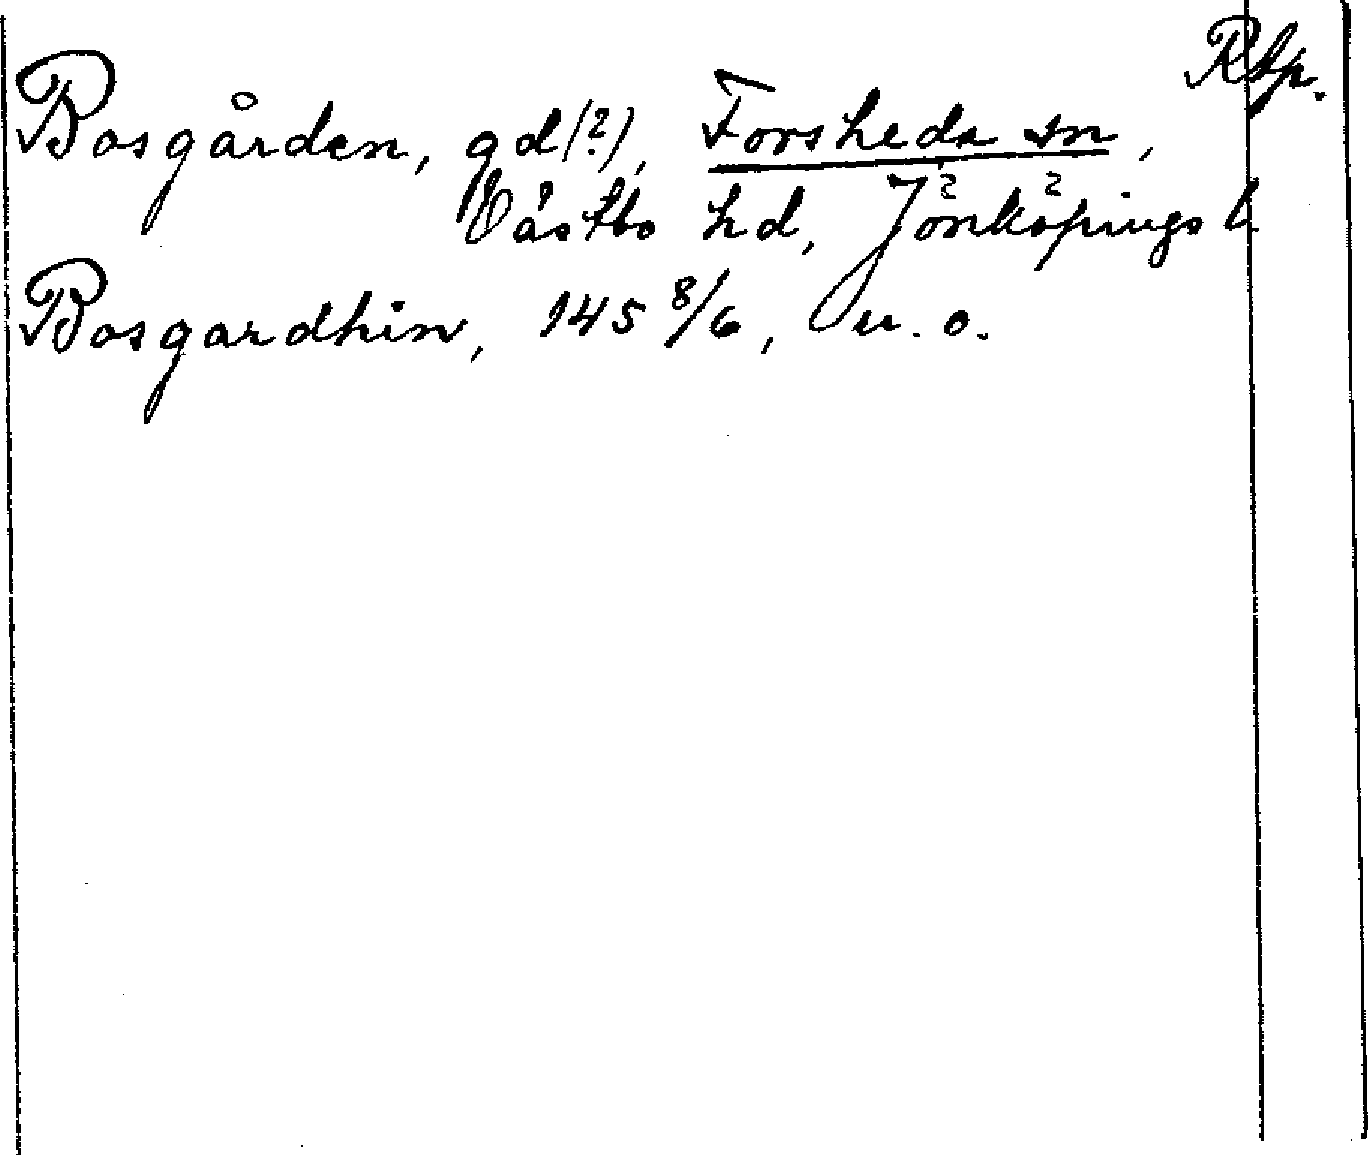 Rtp.
Bosgården, gd(?), Forsheda sn,
Västbo hd, Jönköpings l
Bosgardhin, 145 8/6, u. o.